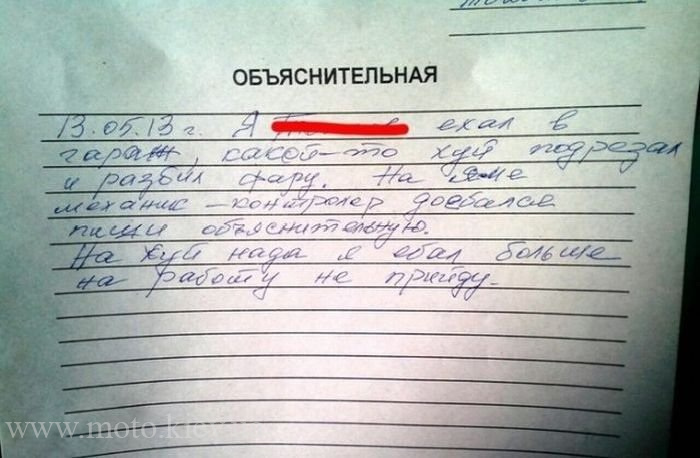 ОБЪЯСНИТЕЛЬНАЯ
13.05.13 г. Я ехал в
гараж, какой-то хуй подрезал
и разбил фару. На
механик-контролер доебался
пиши объяснительную.
На хуй нада я ебал больше
на работу не прийду.
www.moto.kie